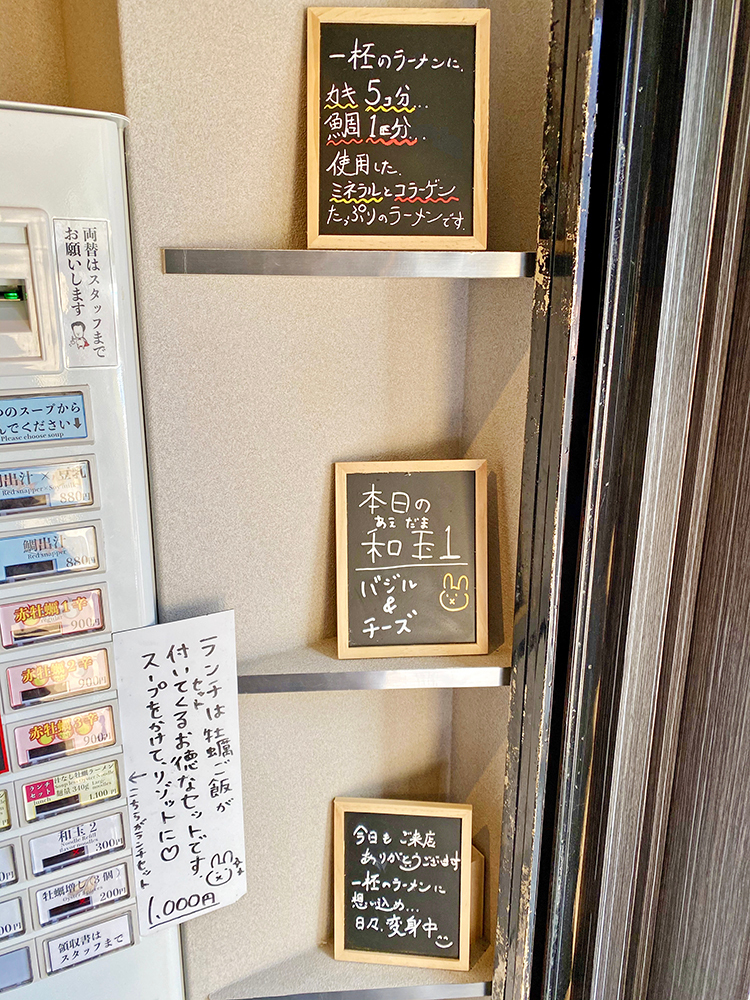 一杯のラーメンに、
カキ 5コ分…
鯛 1匹分…
使用した、
ミネラルとコラーゲン
たっぷりのラーメンです。
両替はスタッフまで
お願いします
のスープから
んでください
Please choose soup
Red snapper ×
880円
鯛出汁
Red snapper
880円
赤牡蠣1辛
900円
赤牡蠣2辛
900円
赤牡蠣3辛
900円
ランチセット
lunch
汁なし牡蠣ラーメン
麺量340g
1,100円
和玉2
Noodle Refill
300円
牡蠣増し(3個)
200円
領収書は
スタッフまで
本日の
あえ だま
和玉1
バジル
&
チーズ
ランチは牡蠣ご飯が
セット
付いてくるお徳なセットです
スープをかけて、リゾットに♡
←こちらがランチセット
1,000円
今日も ご来店
ありがとうございます
一杯のラーメンに
想い込め…
日々、変身中